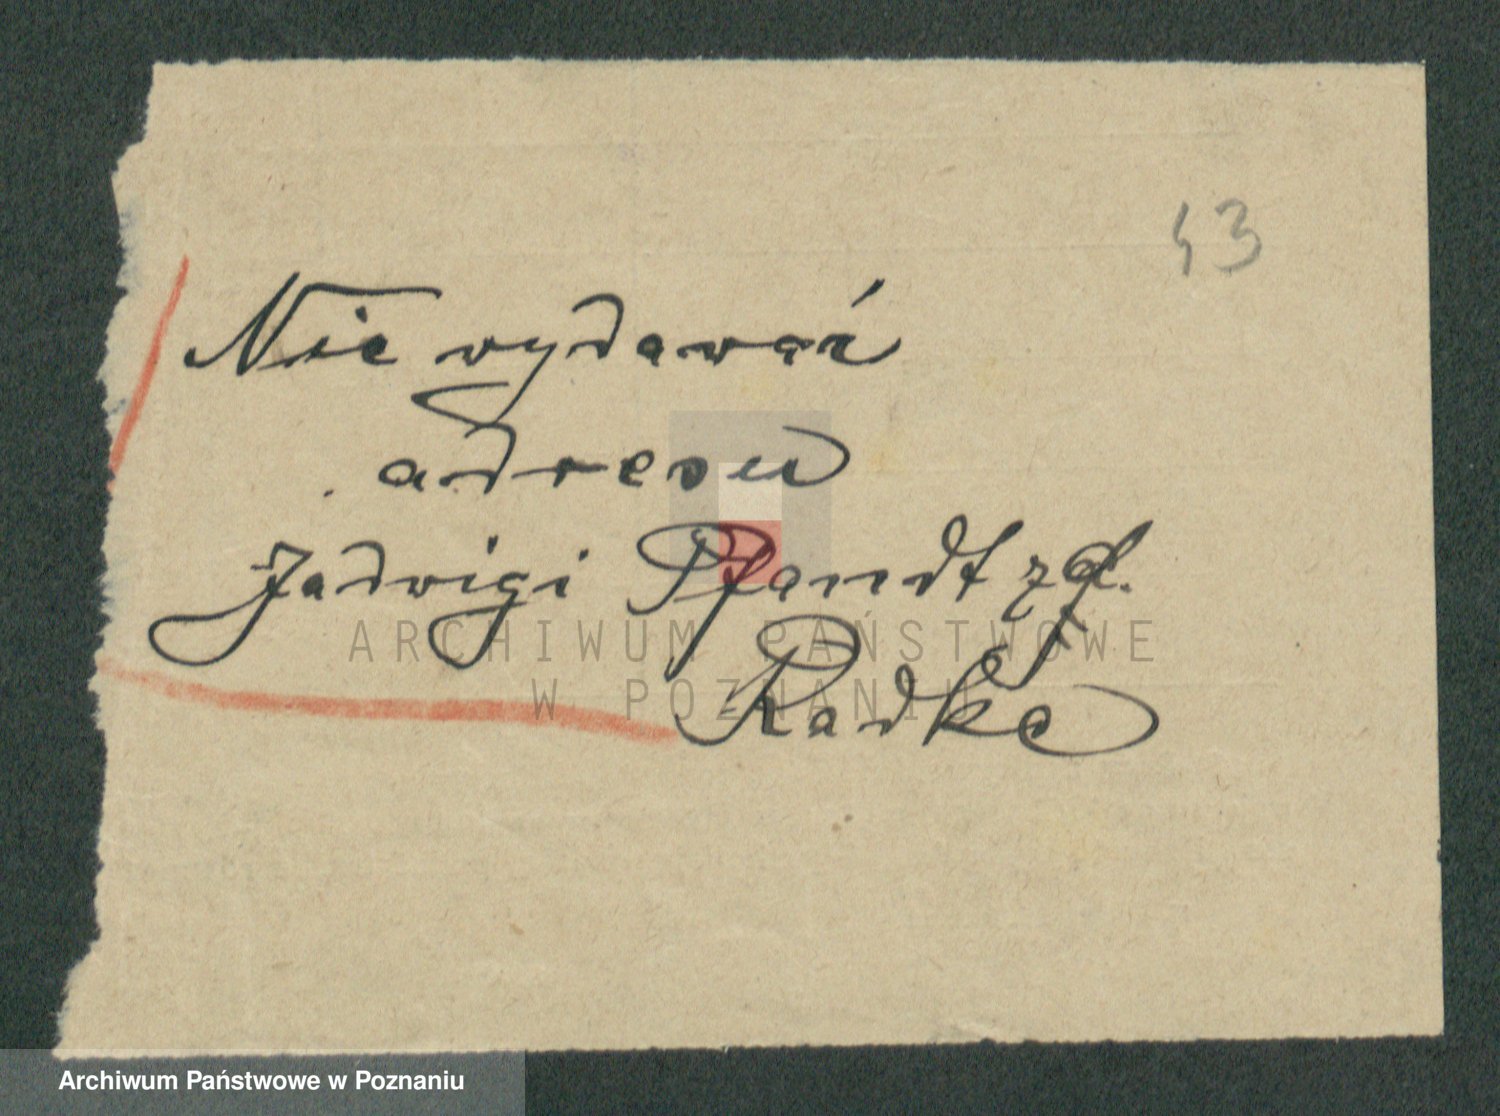 53
Nie wydawać
adresu
Jadwigi Pfandt zgł.
Radke
ARCHIWUM PAŃSTWOWE
W POZNANIU
Archiwum Państwowe w Poznaniu